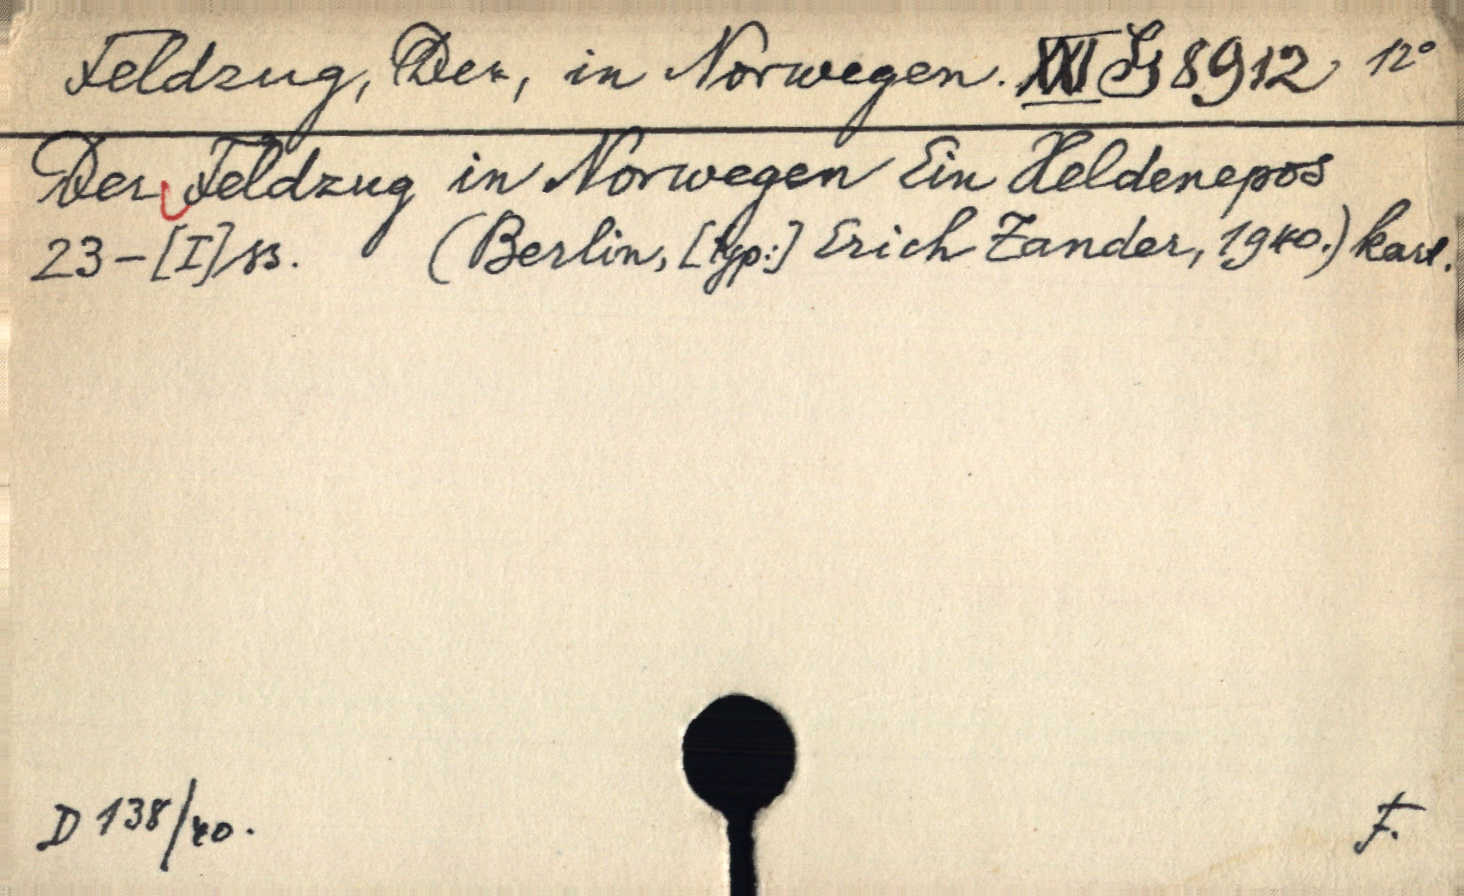 Feldzug, Der, in Norwegen. XXI Js 8912, 12°
Der Feldzug in Norwegen Ein Heldenepos
23-[I] ss. (Berlin, [typ:] Erich Zander, 1940.) kart.
D 138/40. F.